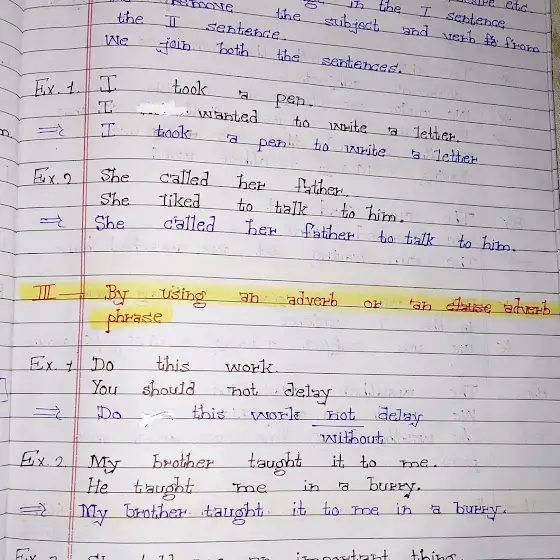 remove the "S" in the I sentence
the II sentence. the subject and verb from
We join both the sentences.
Ex. 1. I took a pen.
I wanted to write a letter.
⇒ I took a pen to write a letter
Ex. 2 She called her father.
She liked to talk to him.
⇒ She called her father to talk to him.
III — By using an adverb or an clause adverb
phrase
Ex. 1 Do this work.
You should not delay
⇒ Do this work not delay
without
Ex. 2. My brother taught it to me.
He taught me in a burry.
⇒ My brother taught it to me in a burry.
important thing.